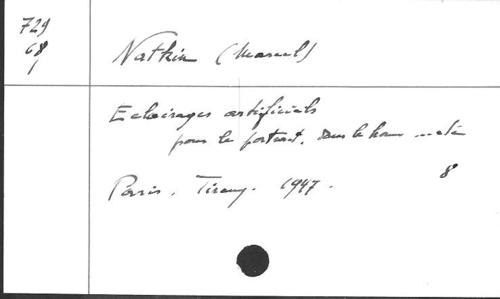 729
68
1
Natkin (Marcel)
Eclairages artificiels
pour le portrait, dans le home ...etc
Paris, Tiranty. 1947.
8